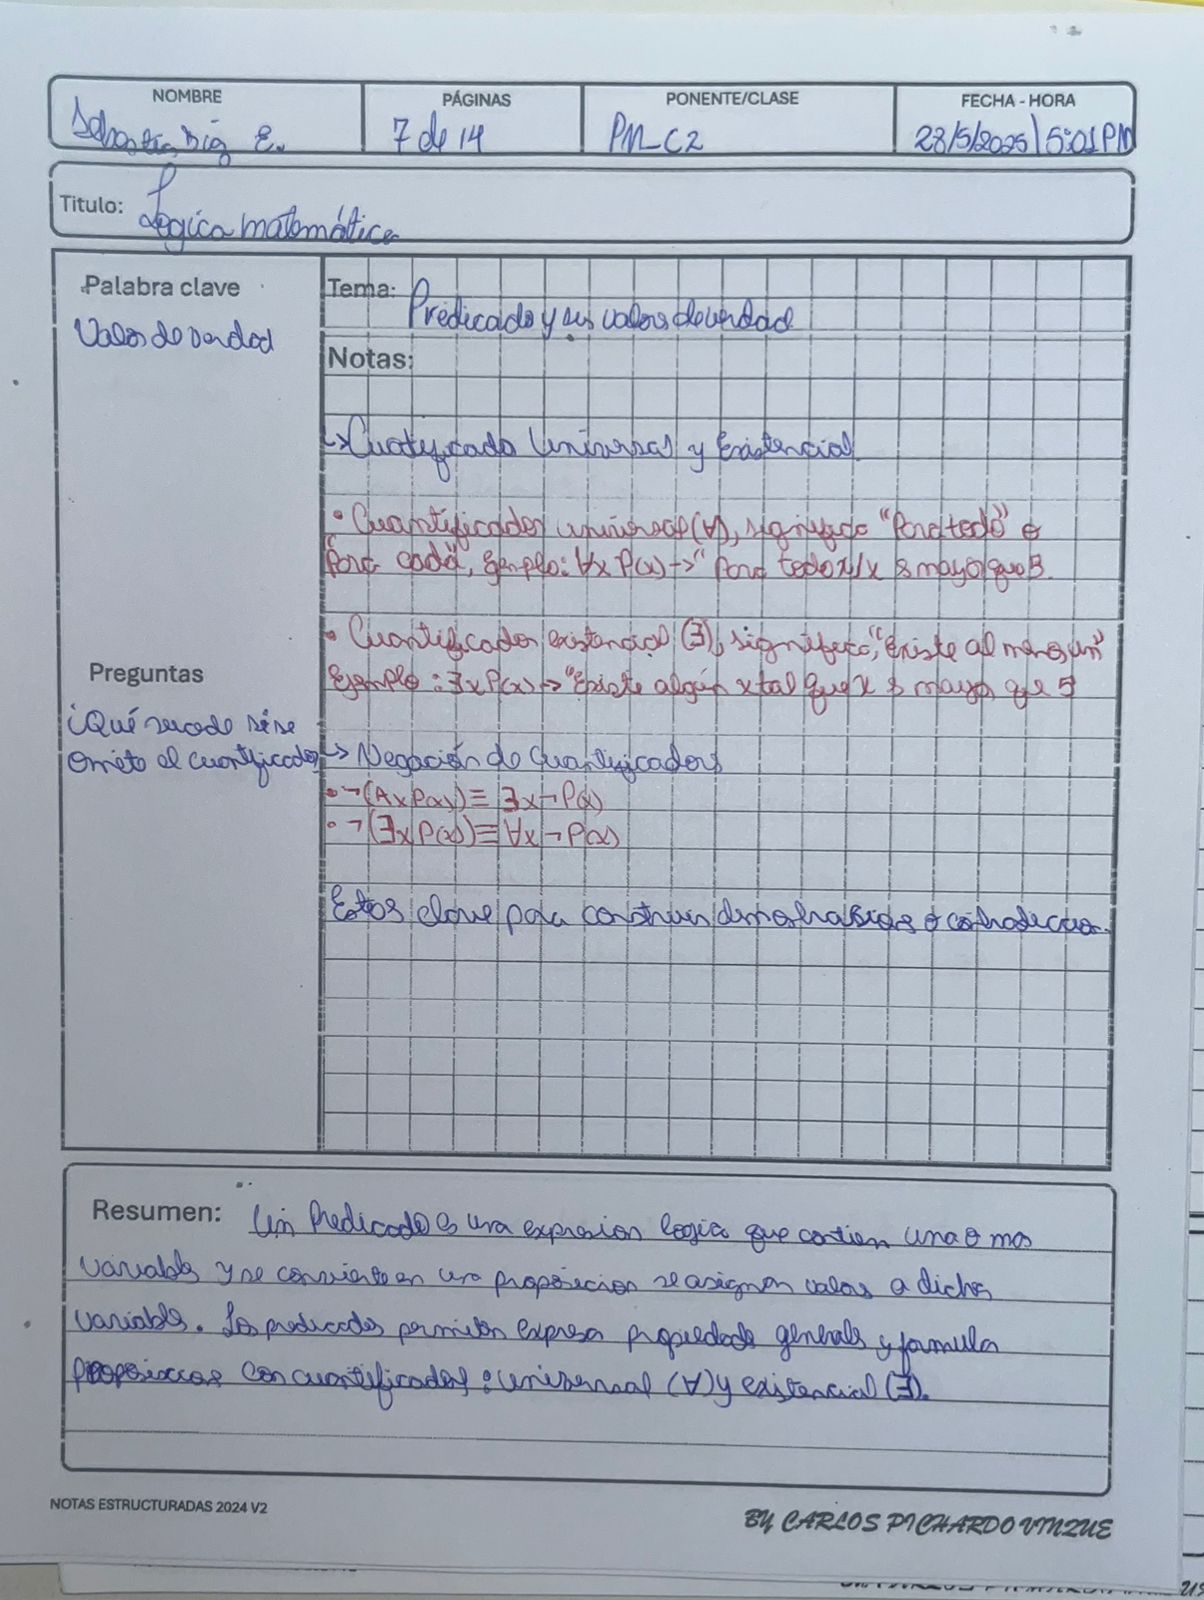 NOMBRE
PÁGINAS
PONENTE/CLASE
FECHA - HORA
E.
7 de 14
PM_C2
28/5/2025 | 5:01 PM
Titulo: Logica matemática
Palabra clave
Valor de verdad
Tema: Predicado y sus valores de verdad
Notas:
↳ Cuatificado Universal y Existencial
• Cuantificador universal (∀), significa "Para todo" o
Para cada", Ejemplo: ∀x P(x) → "Para todo x/x es mayor que 3.
• Cuantificador existencial (∃), significa, "Existe al menos un"
Ejemplo: ∃x P(x) → "Existe algún x tal que x es mayor que 5
Preguntas
¿Qué sucede si se
omite el cuantificador
↳ Negación de Cuantificadores
• ¬(∀x P(x)) ≡ ∃x ¬P(x)
• ¬(∃x P(x)) ≡ ∀x ¬P(x)
Esto es clave para construir o
Resumen: Un Predicado es una expresion logica que contien una o mas
variables y se convierte en una proposicion se asignan valores a dichas
variables. Los predicados permiten expresa propiedade generals y formula
proposiccoes con cuantificadores: universal (∀) y existencial (∃).
NOTAS ESTRUCTURADAS 2024 V2
BY CARLOS PICHARDO VINZUE